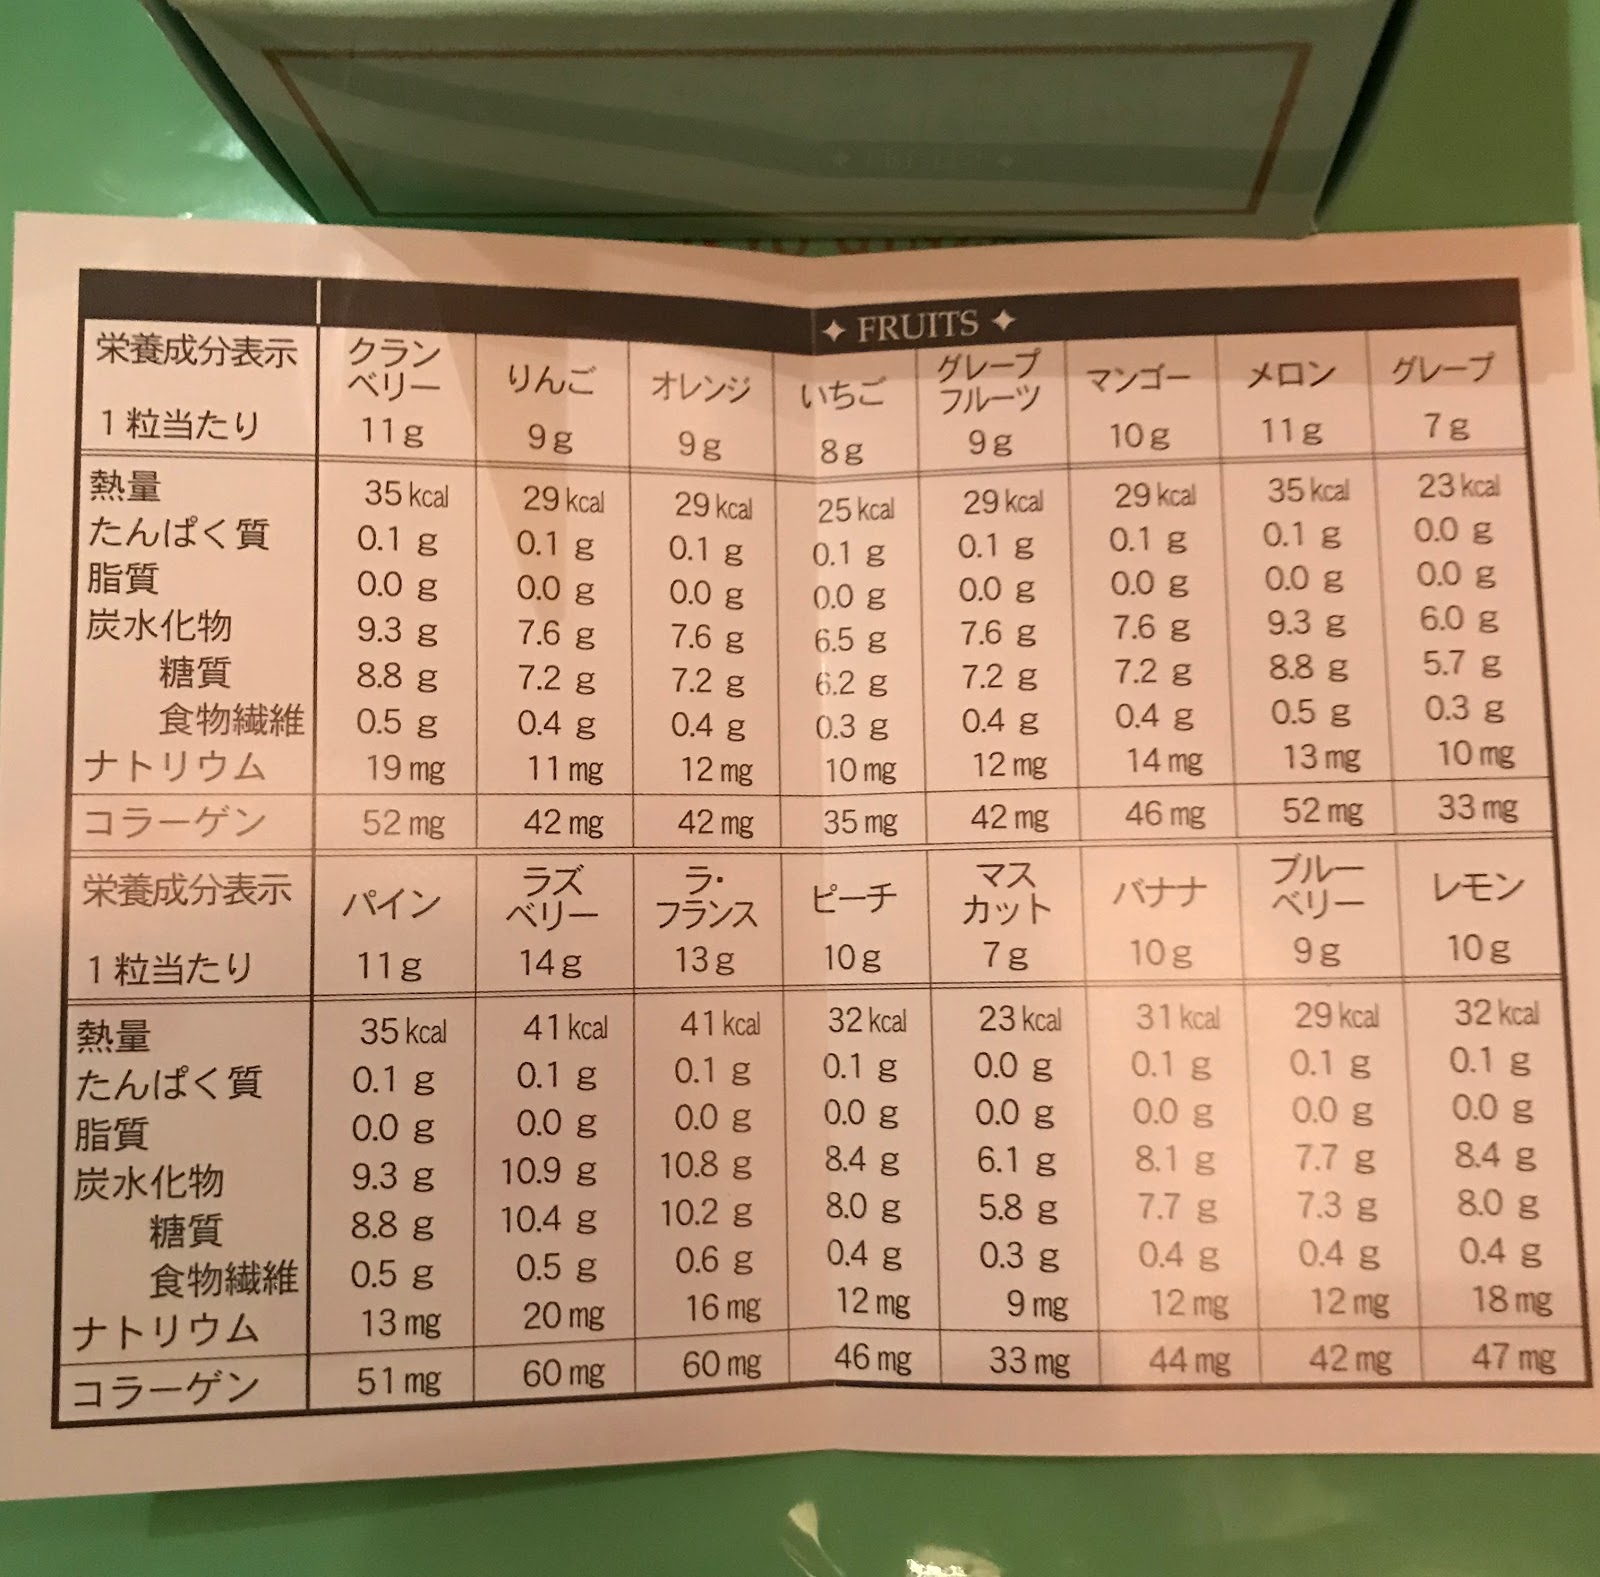 ✦ FRUITS ✦
栄養成分表示 クランベリー りんご オレンジ いちご グレープフルーツ マンゴー メロン グレープ
1粒当たり 11g 9g 9g 8g 9g 10g 11g 7g
熱量 35kcal 29kcal 29kcal 25kcal 29kcal 29kcal 35kcal 23kcal
たんぱく質 0.1g 0.1g 0.1g 0.1g 0.1g 0.1g 0.1g 0.0g
脂質 0.0g 0.0g 0.0g 0.0g 0.0g 0.0g 0.0g 0.0g
炭水化物 9.3g 7.6g 7.6g 6.5g 7.6g 7.6g 9.3g 6.0g
糖質 8.8g 7.2g 7.2g 6.2g 7.2g 7.2g 8.8g 5.7g
食物繊維 0.5g 0.4g 0.4g 0.3g 0.4g 0.4g 0.5g 0.3g
ナトリウム 19mg 11mg 12mg 10mg 12mg 14mg 13mg 10mg
コラーゲン 52mg 42mg 42mg 35mg 42mg 46mg 52mg 33mg
栄養成分表示 パイン ラズベリー ラ・フランス ピーチ マスカット バナナ ブルーベリー レモン
1粒当たり 11g 14g 13g 10g 7g 10g 9g 10g
熱量 35kcal 41kcal 41kcal 32kcal 23kcal 31kcal 29kcal 32kcal
たんぱく質 0.1g 0.1g 0.1g 0.1g 0.0g 0.1g 0.1g 0.1g
脂質 0.0g 0.0g 0.0g 0.0g 0.0g 0.0g 0.0g 0.0g
炭水化物 9.3g 10.9g 10.8g 8.4g 6.1g 8.1g 7.7g 8.4g
糖質 8.8g 10.4g 10.2g 8.0g 5.8g 7.7g 7.3g 8.0g
食物繊維 0.5g 0.5g 0.6g 0.4g 0.3g 0.4g 0.4g 0.4g
ナトリウム 13mg 20mg 16mg 12mg 9mg 12mg 12mg 18mg
コラーゲン 51mg 60mg 60mg 46mg 33mg 44mg 42mg 47mg